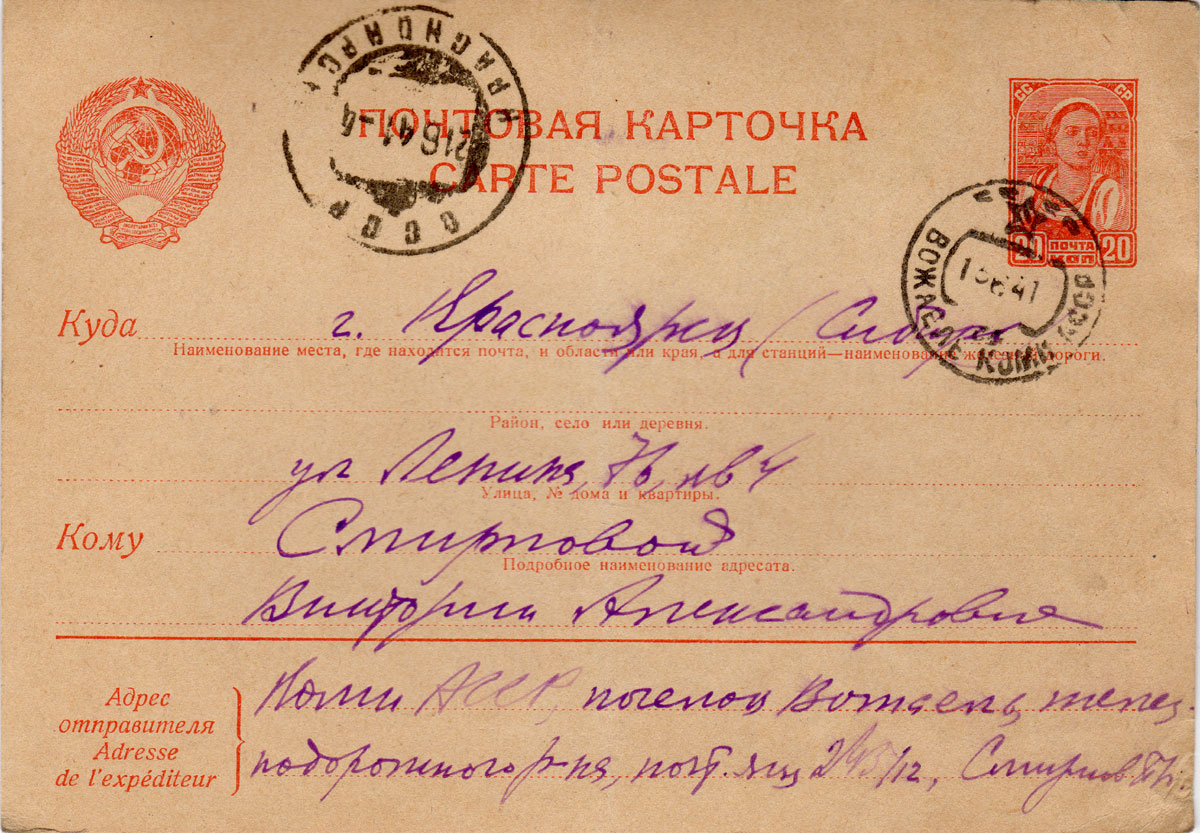 КРАСНОЯРСК
21 6 41-4
СССР
ПОЧТОВАЯ КАРТОЧКА
CARTE POSTALE
СС СР
20 ПОЧТА 20
КОП
ВОЖАЕЛЬ КОМИ АССР
6 41
Куда г. Красноярск (Сибирь
Наименование места, где находится почта, и области или края, а для станций—наименование железной дороги.
Район, село или деревня.
ул Ленина, 76, кв 4
Улица, № дома и квартиры.
Кому Смирновой
Подробное наименование адресата.
Виктории Александровне
Адрес отправителя
Adresse de l'expéditeur
Коми АССР, поселок Вожаель, желез-
нодорожного р-на, почт. ящ 243/12, Смирнов